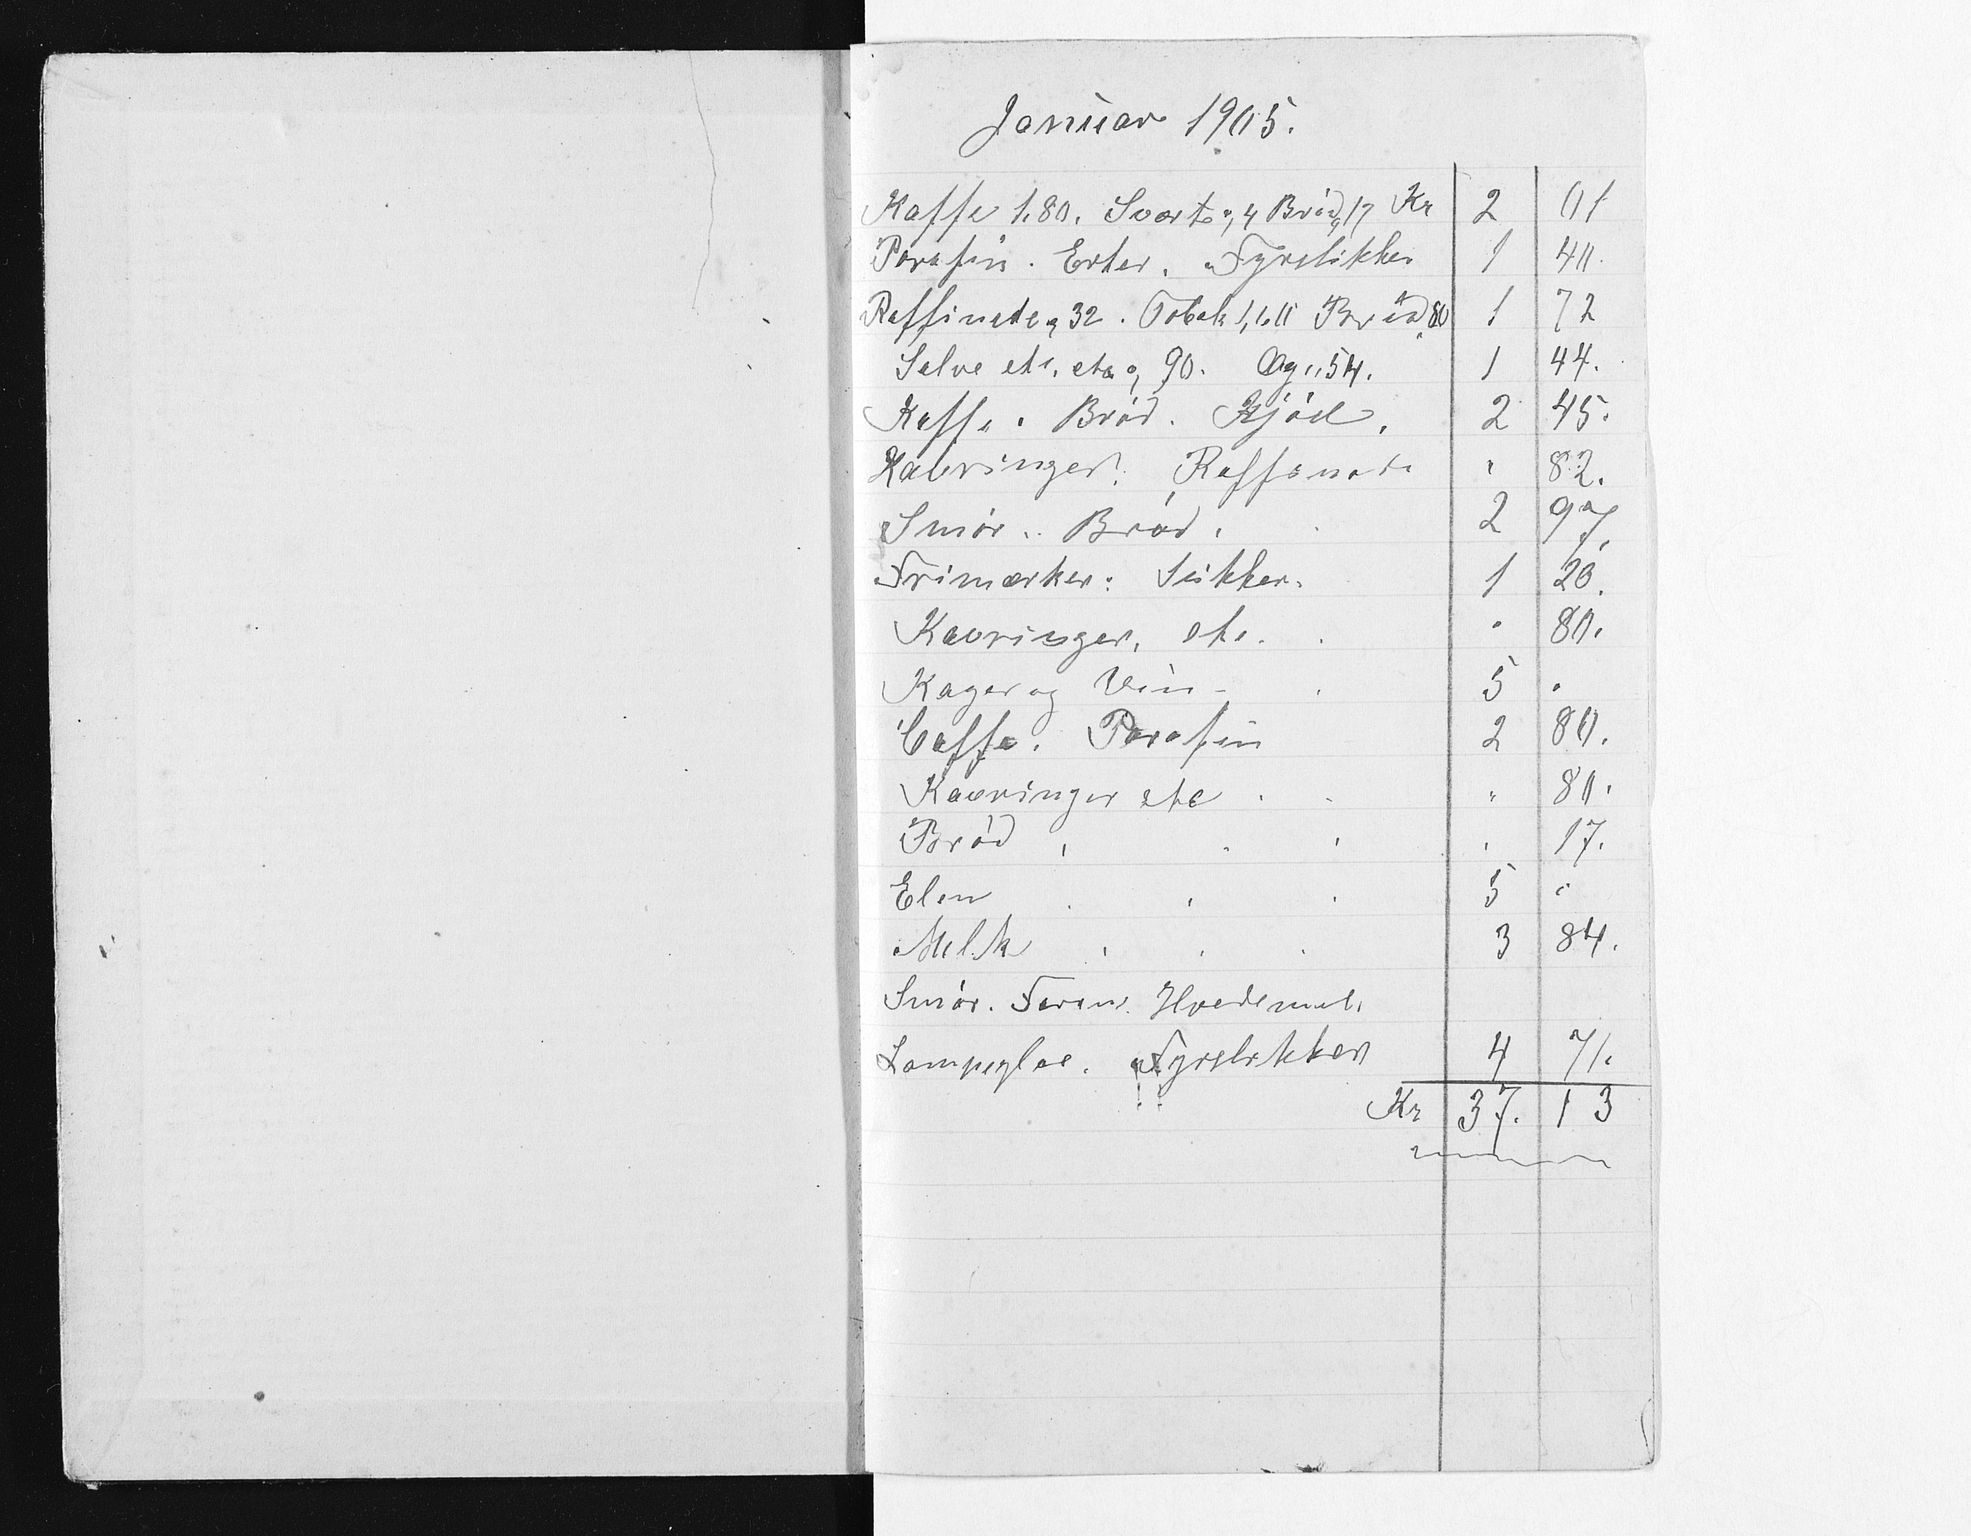 Januar 1905.
Kaffe 1.80. Sværte 0,4 Brød 0,17 Kr 2 01
Parafin. Erter. Fyrstikker 1 40.
Raffinade 0,32. Tobak 1, Brød 80 1 72
Salve etc. etc 0,90. Og 54. 1 44.
Kaffe. Brød. Kjöd. 2 45.
Kavringer. Raffinade " 82.
Smör. Bröd. 2 97.
Frimærker. Sukker. 1 20.
Kavringer, etc. " 80.
Kager og Vin - 5 "
Caffe. Parafin 2 80.
Kavringer etc " 80.
Bröd " 17.
Elen 5 "
Melk 3 84.
Smör. Hvedemel.
Lampeglas. Fyrstikker 4 71.
Kr 37. 13